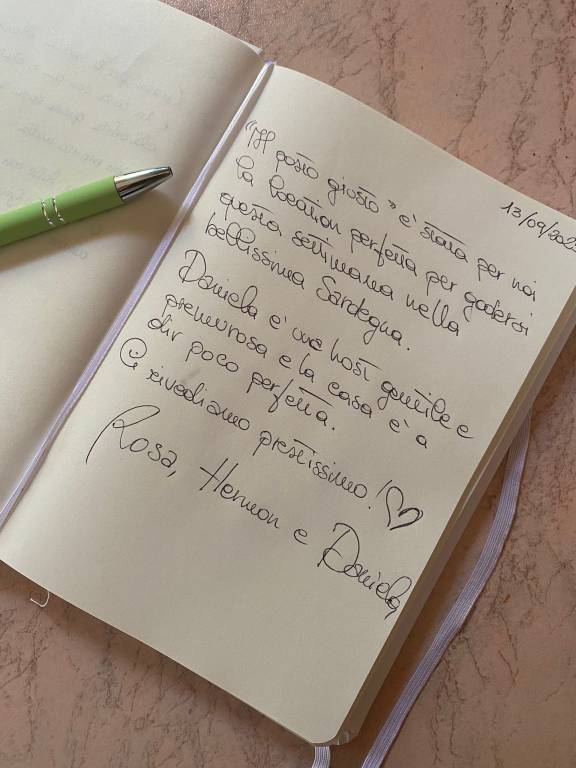 13/09/202
"Il posto giusto" è stata per noi
la location perfetta per godersi
questa settimana nella
bellissima Sardegna.
Daniela è una host gentile e
premurosa e la casa è a
dir poco perfetta.
Ci rivediamo prestissimo! ♡
Rosa, Hermon e Daniela